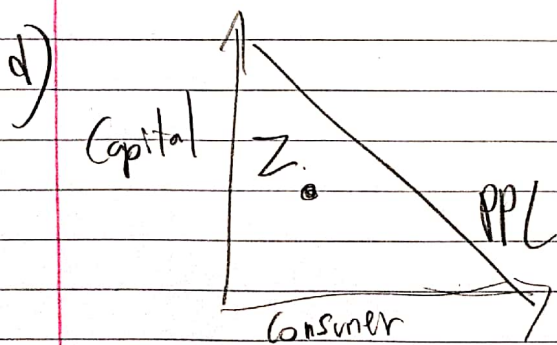 d)
Capital
Z.
PPC
Consumer